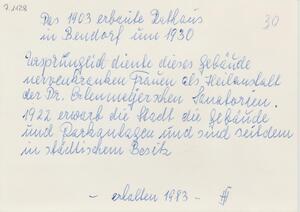 7.1128
30
Das 1903 erbaute Rathaus
in Bendorf um 1930
Ursprünglich diente dieses Gebäude
nervenkranken Frauen als Heilanstalt
der Dr. Erlenmeyerschen Sanatorien.
1922 erwarb die Stadt die Gebäude
und Parkanlagen und sind seitdem
in städtischem Besitz
- erhalten 1983 -